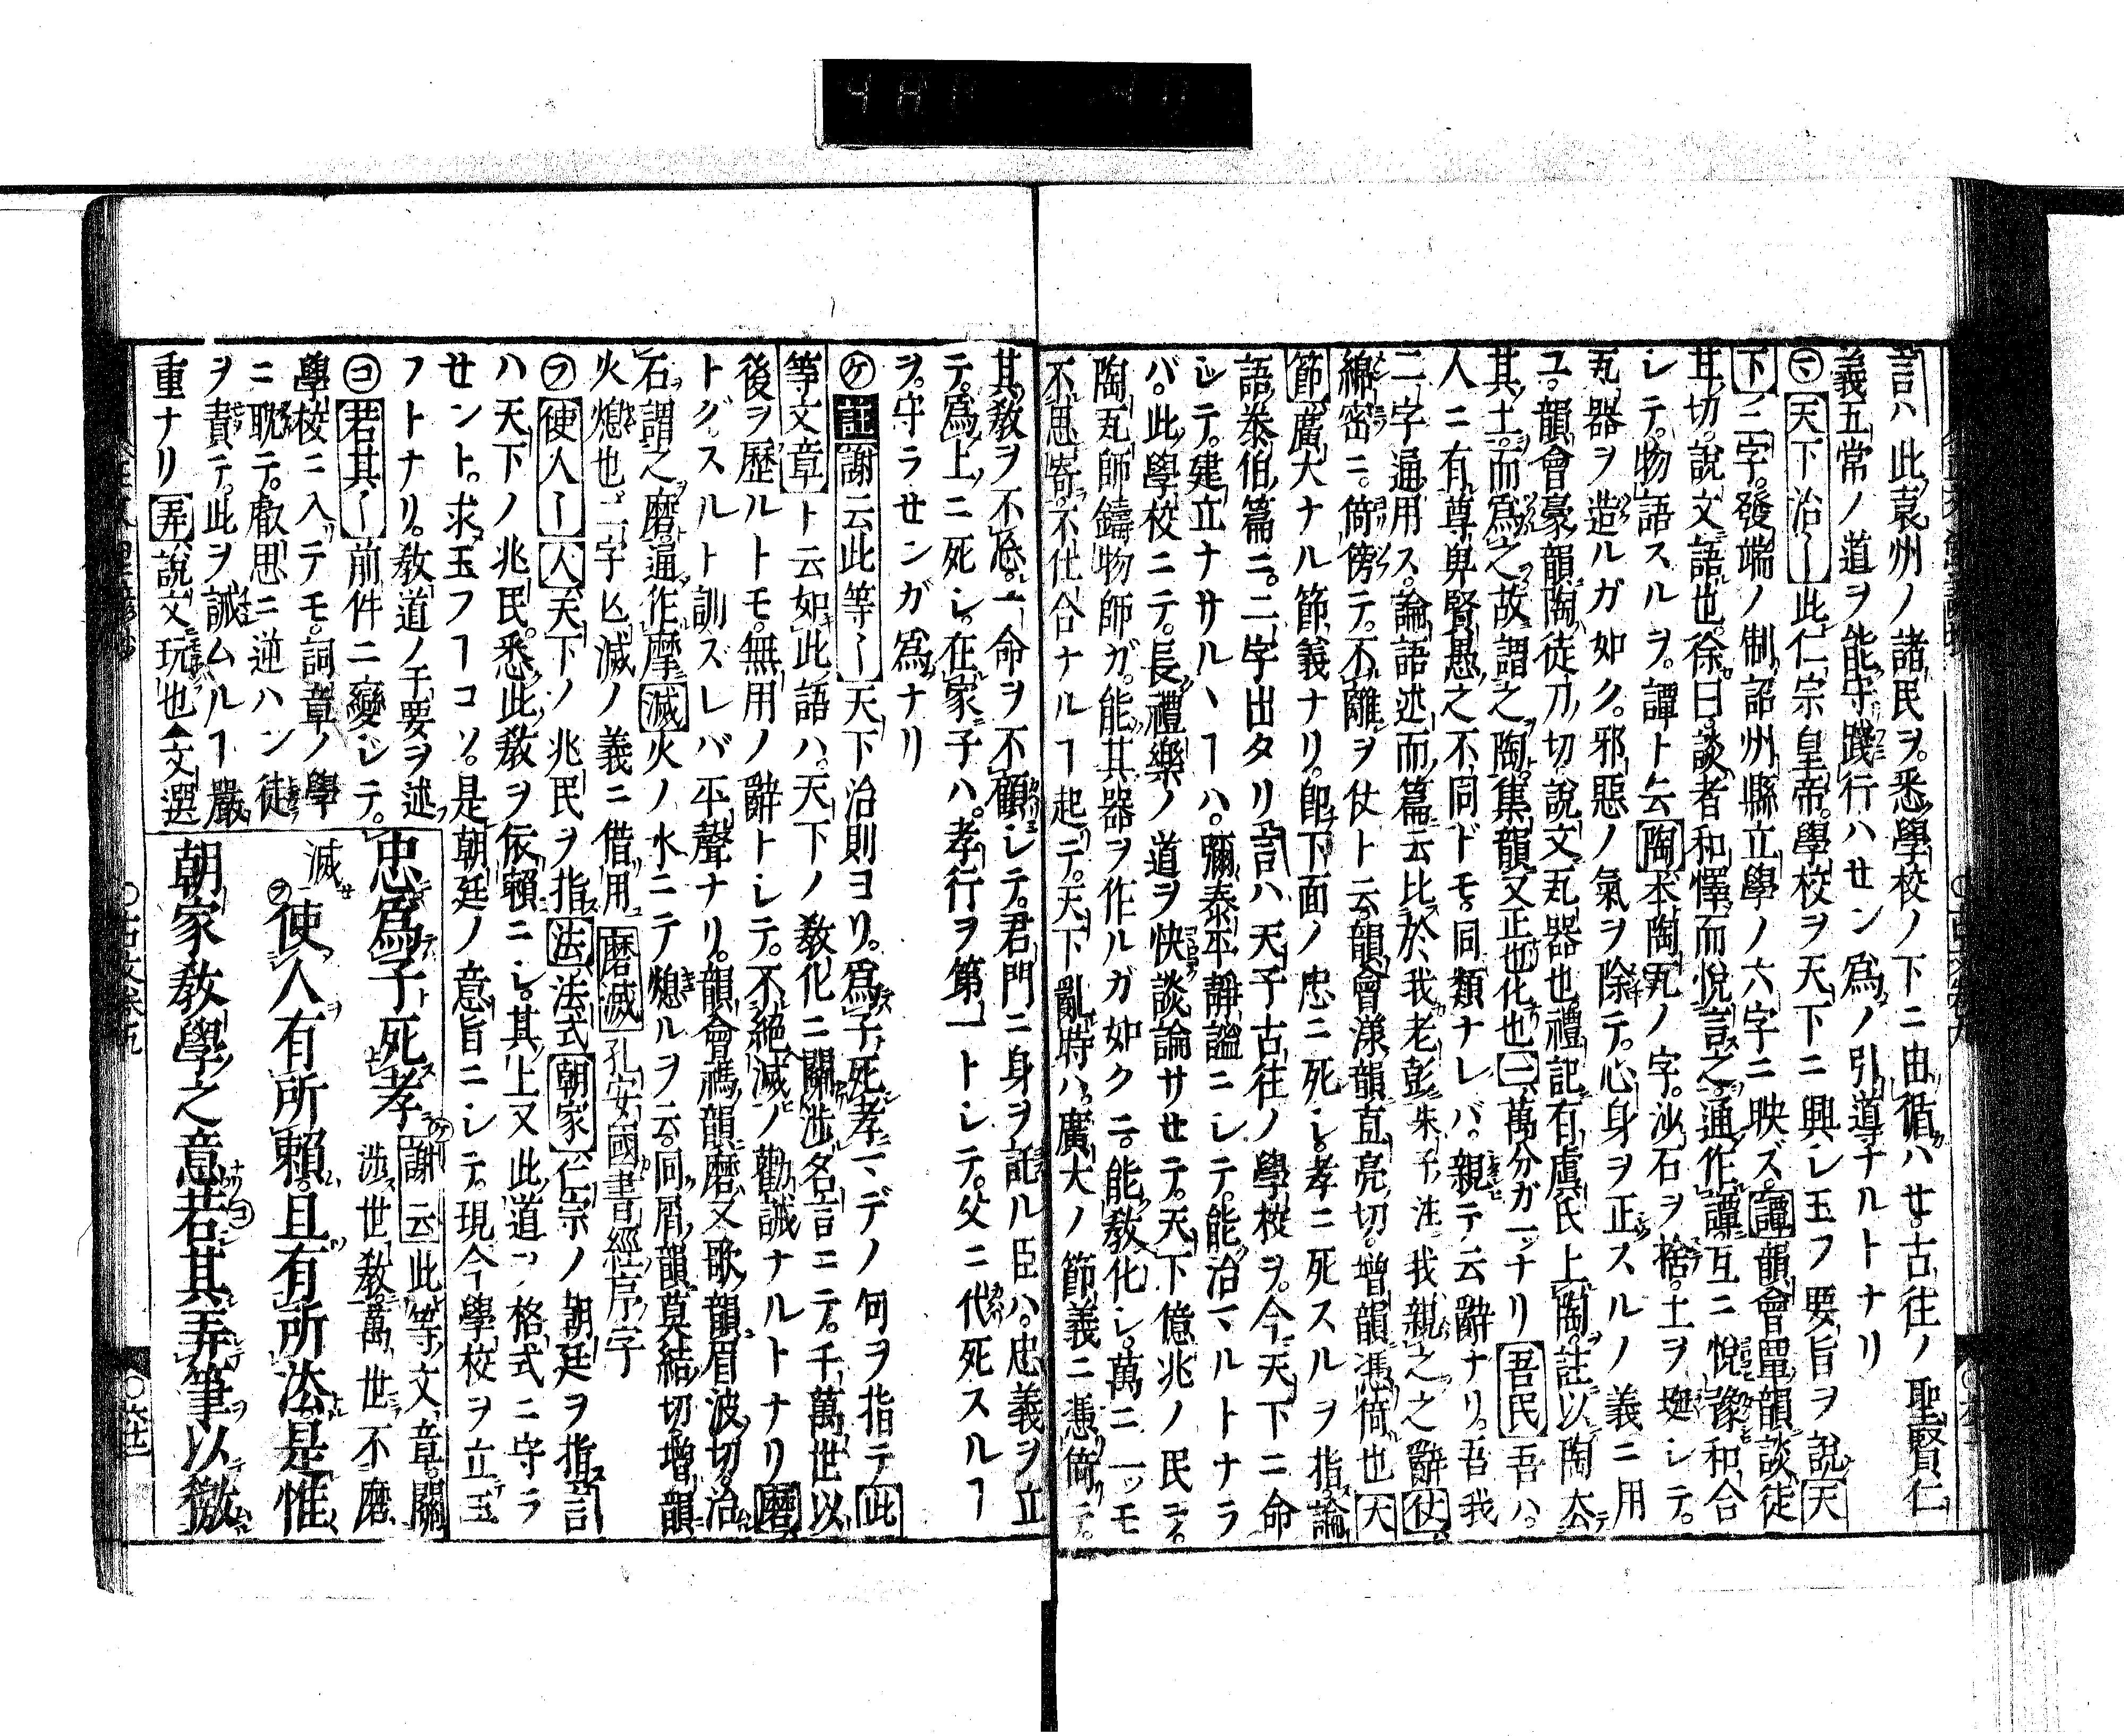 言ハ此袁州ノ諸民ヲ。悉學校ノ下ニ由循ハセ。古往ノ聖賢仁
義五常ノ道ヲ能守踐行ハセン為ノ引導ナルトナリ
㋮天下治〡此仁宗皇帝。學校ヲ天下ニ興シ玉フ要旨ヲ說天
下ニ字。發端ノ制詔州縣立學ノ六字ニ映ズ。譚韻會覃韻談徒
甘切。說文語也。徐曰談者和懌而悅言之。通作譚互ニ悅豫和合
シテ。物語スルヲ。譚ト云陶本陶瓦ノ字。沙石ヲ捨。土ヲ埏シテ。
瓦器ヲ造ルガ如ク。邪惡ノ氣ヲ除テ。心身ヲ正スルノ義ニ用
ユ。韻會豪韻陶徒刀切說文瓦器也禮記有虞氏上陶。註以陶太
其土。而為之故謂之陶。集韻又正也化也一萬分ガ一ッナリ吾民吾ハ。
人ニ有尊卑賢愚之不同ドモ。同類ナレバ。親テ云辭ナリ。吾我
二字通用ス。論語述而篇云比於我老彭朱子注我親之之辭仗
綿密ニ。倚傍テ。不離ヲ仗ト云韻會漾韻直亮切。增韻憑倚也大
節廣大ナル節義ナリ。即下面ノ忠ニ死シ。孝ニ死スルヲ指論
語泰伯篇ニ。二字出タリ言ハ天子古往ノ學校ヲ。今天下ニ命
シテ。建立ナサルヽヿハ。彌泰平靜謐ニシテ。能治マルトナラ
バ。此學校ニテ。長禮樂ノ道ヲ快談論サセテ。天下億兆ノ民ヲ。
陶瓦師鑄物師ガ。能其器ヲ作ルガ如クニ。能敎化シ。萬ニ一ッモ
不思寄。不仕合ナルヿ起テ。天下亂時ハ。廣大ノ節義ニ憑倚テ。
其敎ヲ不忘。一命ヲ不顧シテ。君門ニ身ヲ託ル臣ハ。忠義ヲ立
テ。為上ニ死シ。在家子ハ。孝行ヲ第一トシテ。父ニ代死スルヿ
ヲ。守ラセンガ為ナリ
㋘註謝云此等〡天下治則ヨリ。為子死孝マデノ句ヲ指テ此
等文章ト云如此語ハ。天下ノ敎化ニ關涉名言ニテ。千萬世以
後ヲ歷ルトモ。無用ノ辭トシテ。不絕滅ノ勸誡ナルトナリ磨
トグスルト訓ズレバ平聲ナリ。韻會禡韻磨又歌韻眉波切。治
石謂之磨。通作摩滅火ノ水ニテ熄ルヲ云。同屑韻莫結切增韻
火熄也二字凡滅ノ義ニ借用磨滅孔安國書經序字
㋫使人〡人天下ノ兆民ヲ指法法式朝家仁宗ノ朝廷ヲ指言
ハ天下ノ兆民。悉此敎ヲ依賴ニシ。其上又此道ヲ格式ニ守ラ
セント。求玉フヿコソ。是朝廷ノ意旨ニシテ。現今學校ヲ立玉
フトナリ。敎道ノ于要ヲ述
㋵若其〡前件ニ變シテ。
學校ニ入テモ。詞章ノ學
ニ耽テ。叡思ニ逆ハン徒
ヲ責テ。此ヲ誡ムルヿ嚴
重ナリ弄說文玩也▲文選
忠為子死孝㋘謝云此等文章。關
涉世敎。萬世不磨
滅
㋫使人有所賴。且有所法。是惟
朝家敎學之意㋵若其弄筆以徼